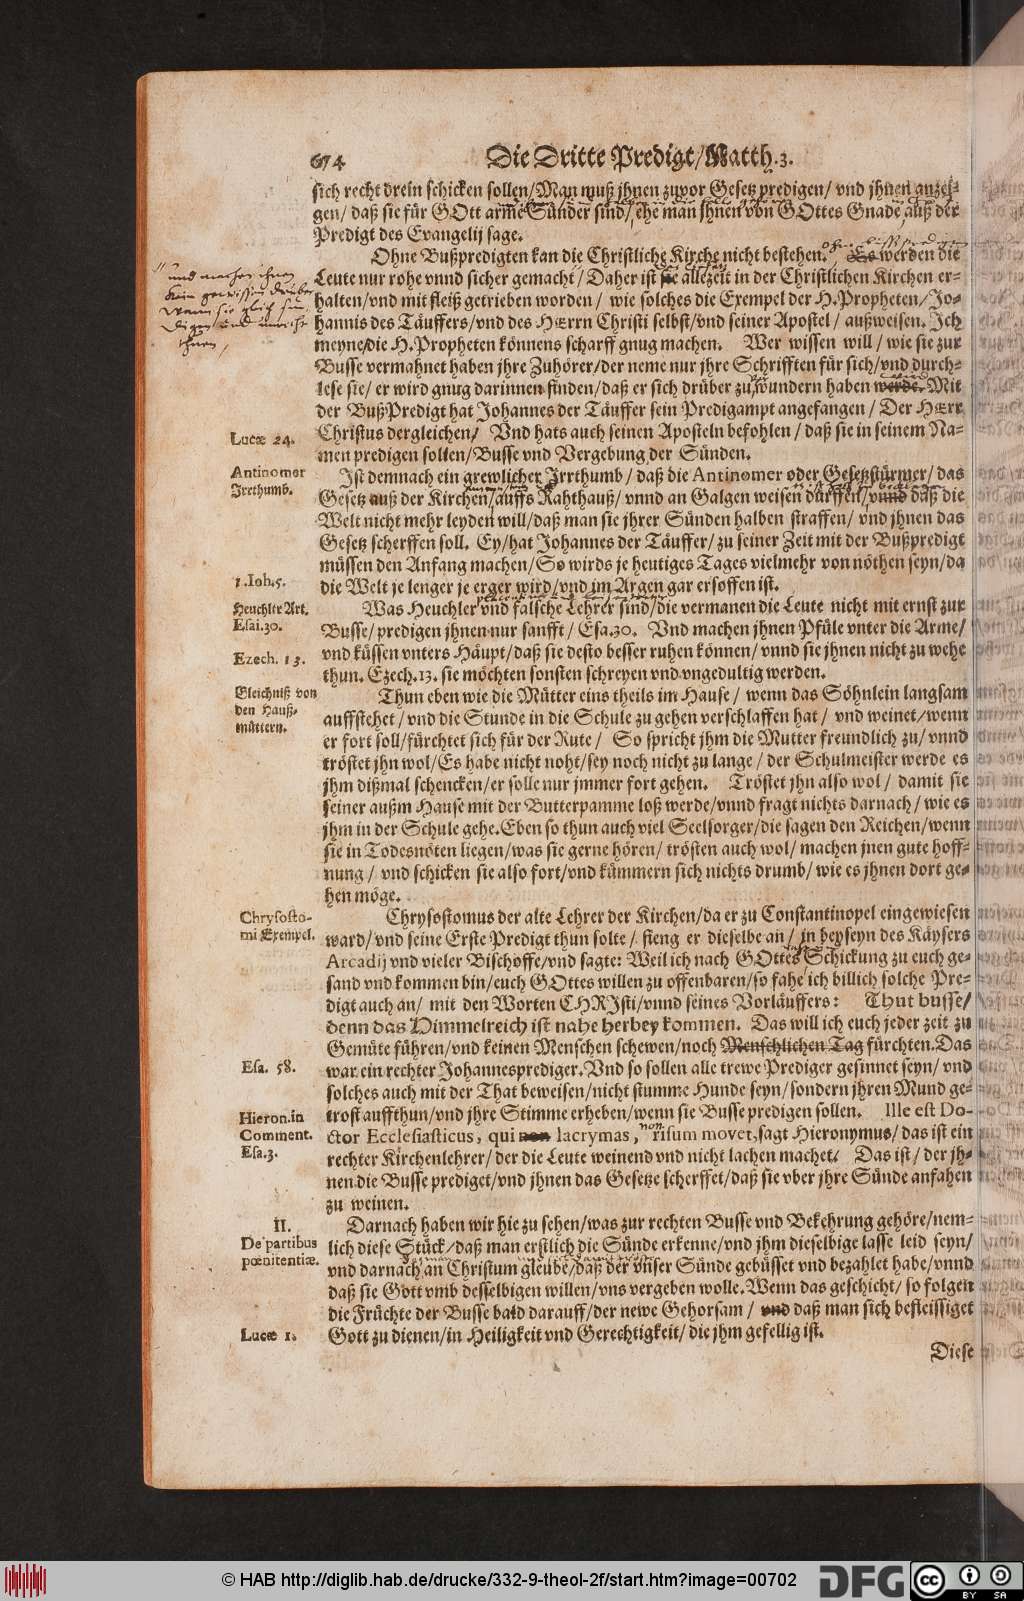 674 Die Dritte Predigt/Matth.3.
sich recht drein schicken sollen/Man muß jhnen zuvor Gesetz predigen/ vnd jhnen anzei-
gen/ daß sie für GOtt arme Sünder sind/ ehe man jhnen von GOttes Gnade/ auß der
Predigt des Evangelij sage.
Ohne Bußpredigten kan die Christliche Kirche nicht bestehen. Es werden die
Leute nur rohe vnnd sicher gemacht/ Daher ist sie allezeit in der Christlichen Kirchen er-
halten/vnd mit fleiß getrieben worden/ wie solches die Exempel der H. Propheten/Jo-
hannis des Täuffers/vnd des HErrn Christi selbst/vnd seiner Apostel/ außweisen. Ich
meyne/die H. Propheten könnens scharff gnug machen. Wer wissen will/ wie sie zur
Busse vermahnet haben jhre Zuhörer/der neme nur jhre Schrifften für sich/vnd durch-
lese sie/ er wird gnug darinnen finden/daß er sich drüber zu wundern haben werde. Mit
der BußPredigt hat Johannes der Täuffer sein Predigampt angefangen/ Der HErr
Lucæ 24. Christus dergleichen/ Vnd hats auch seinen Aposteln befohlen/ daß sie in seinem Na-
men predigen sollen/Busse vnd Vergebung der Sünden.
Antinomer Ist demnach ein grewlicher Irrthumb/ daß die Antinomer oder Gesetzstürmer/das
Irrthumb. Gesetz auß der Kirchen/auffs Rahthauß/ vnnd an Galgen weisen dürffen/vnnd daß die
Welt nicht mehr leyden will/daß man sie jhrer Sünden halben straffen/ vnd jhnen das
Gesetz scherffen soll. Ey/hat Johannes der Täuffer/zu seiner Zeit mit der Bußpredigt
müssen den Anfang machen/So wirds je heutiges Tages vielmehr von nöthen seyn/da
1.Ioh.5. die Welt je lenger je erger wird/vnd im Argen gar ersoffen ist.
Heuchler Art. Was Heuchler vnd falsche Lehrer sind/die vermanen die Leute nicht mit ernst zur
Esai.30. Busse/predigen jhnen nur sanfft/ Esa.30. Vnd machen jhnen Pfüle vnter die Arme/
Ezech. 13. vnd küssen vnters Häupt/daß sie desto besser ruhen können/ vnnd sie jhnen nicht zu wehe
thun. Ezech.13. sie möchten sonsten schreyen vnd vngedultig werden.
Gleichniß von Thun eben wie die Mütter eins theils im Hause/ wenn das Söhnlein langsam
den Hauß- auffstehet/ vnd die Stunde in die Schule zu gehen verschlaffen hat/ vnd weinet/wenn
müttern. er fort soll/fürchtet sich für der Rute/ So spricht jhm die Mutter freundlich zu/ vnnd
tröstet jhn wol/Es habe nicht noht/sey noch nicht zu lange/ der Schulmeister werde es
jhm dißmal schencken/er solle nur jmmer fort gehen. Tröstet jhn also wol/ damit sie
seiner außm Hause mit der Butterpamme loß werde/vnnd fragt nichts darnach/ wie es
jhm in der Schule gehe. Eben so thun auch viel Seelsorger/die sagen den Reichen/wenn
sie in Todesnöten liegen/was sie gerne hören/ trösten auch wol/ machen jnen gute hoff-
nung/ vnd schicken sie also fort/vnd kümmern sich nichts drumb/ wie es jhnen dort ge-
hen möge.
Chrysosto- Chrysostomus der alte Lehrer der Kirchen/da er zu Constantinopel eingewiesen
mi Exempel. ward/vnd seine Erste Predigt thun solte/ fieng er dieselbe an/ in beyseyn des Käysers
Arcadij vnd vieler Bischoffe/vnd sagte: Weil ich nach GOttes Schickung zu euch ge-
sand vnd kommen bin/euch GOttes willen zu offenbaren/so fahe ich billich solche Pre-
digt auch an/ mit den Worten CHRJsti/vnnd seines Vorläuffers: Thut busse/
denn das Himmelreich ist nahe herbey kommen. Das will ich euch jeder zeit zu
Gemüte führen/vnd keinen Menschen schewen/noch Menschlichen Tag fürchten. Das
Esa. 58. war ein rechter Johannesprediger. Vnd so sollen alle trewe Prediger gesinnet seyn/ vnd
solches auch mit der That beweisen/nicht stumme Hunde seyn/sondern jhren Mund ge-
Hieron.in trost auffthun/vnd jhre Stimme erheben/wenn sie Busse predigen sollen. Ille est Do-
Comment. ctor Ecclesiasticus, qui non lacrymas, non risum movet, sagt Hieronymus/ das ist ein
Esa.3. rechter Kirchenlehrer/ der die Leute weinend vnd nicht lachen machet/ Das ist/ der jh-
nen die Busse prediget/vnd jhnen das Gesetze scherffet/daß sie vber jhre Sünde anfahen
zu weinen.
II. Darnach haben wir hie zu sehen/was zur rechten Busse vnd Bekehrung gehöre/nem-
De partibus lich diese Stück/daß man erstlich die Sünde erkenne/vnd jhm dieselbige lasse leid seyn/
pœnitentiæ. vnd darnach an Christum gleube/daß der vnser Sünde gebüsset vnd bezahlet habe/vnnd
daß sie Gott vmb desselbigen willen/vns vergeben wolle. Wenn das geschicht/ so folgen
die Früchte der Busse bald darauff/der newe Gehorsam/ vnd daß man sich befleissiget
Lucæ 1. Gott zu dienen/in Heiligkeit vnd Gerechtigkeit/ die jhm gefellig ist.
Diese
© HAB http://diglib.hab.de/drucke/332-9-theol-2f/start.htm?image=00702
DFG
cc BY SA